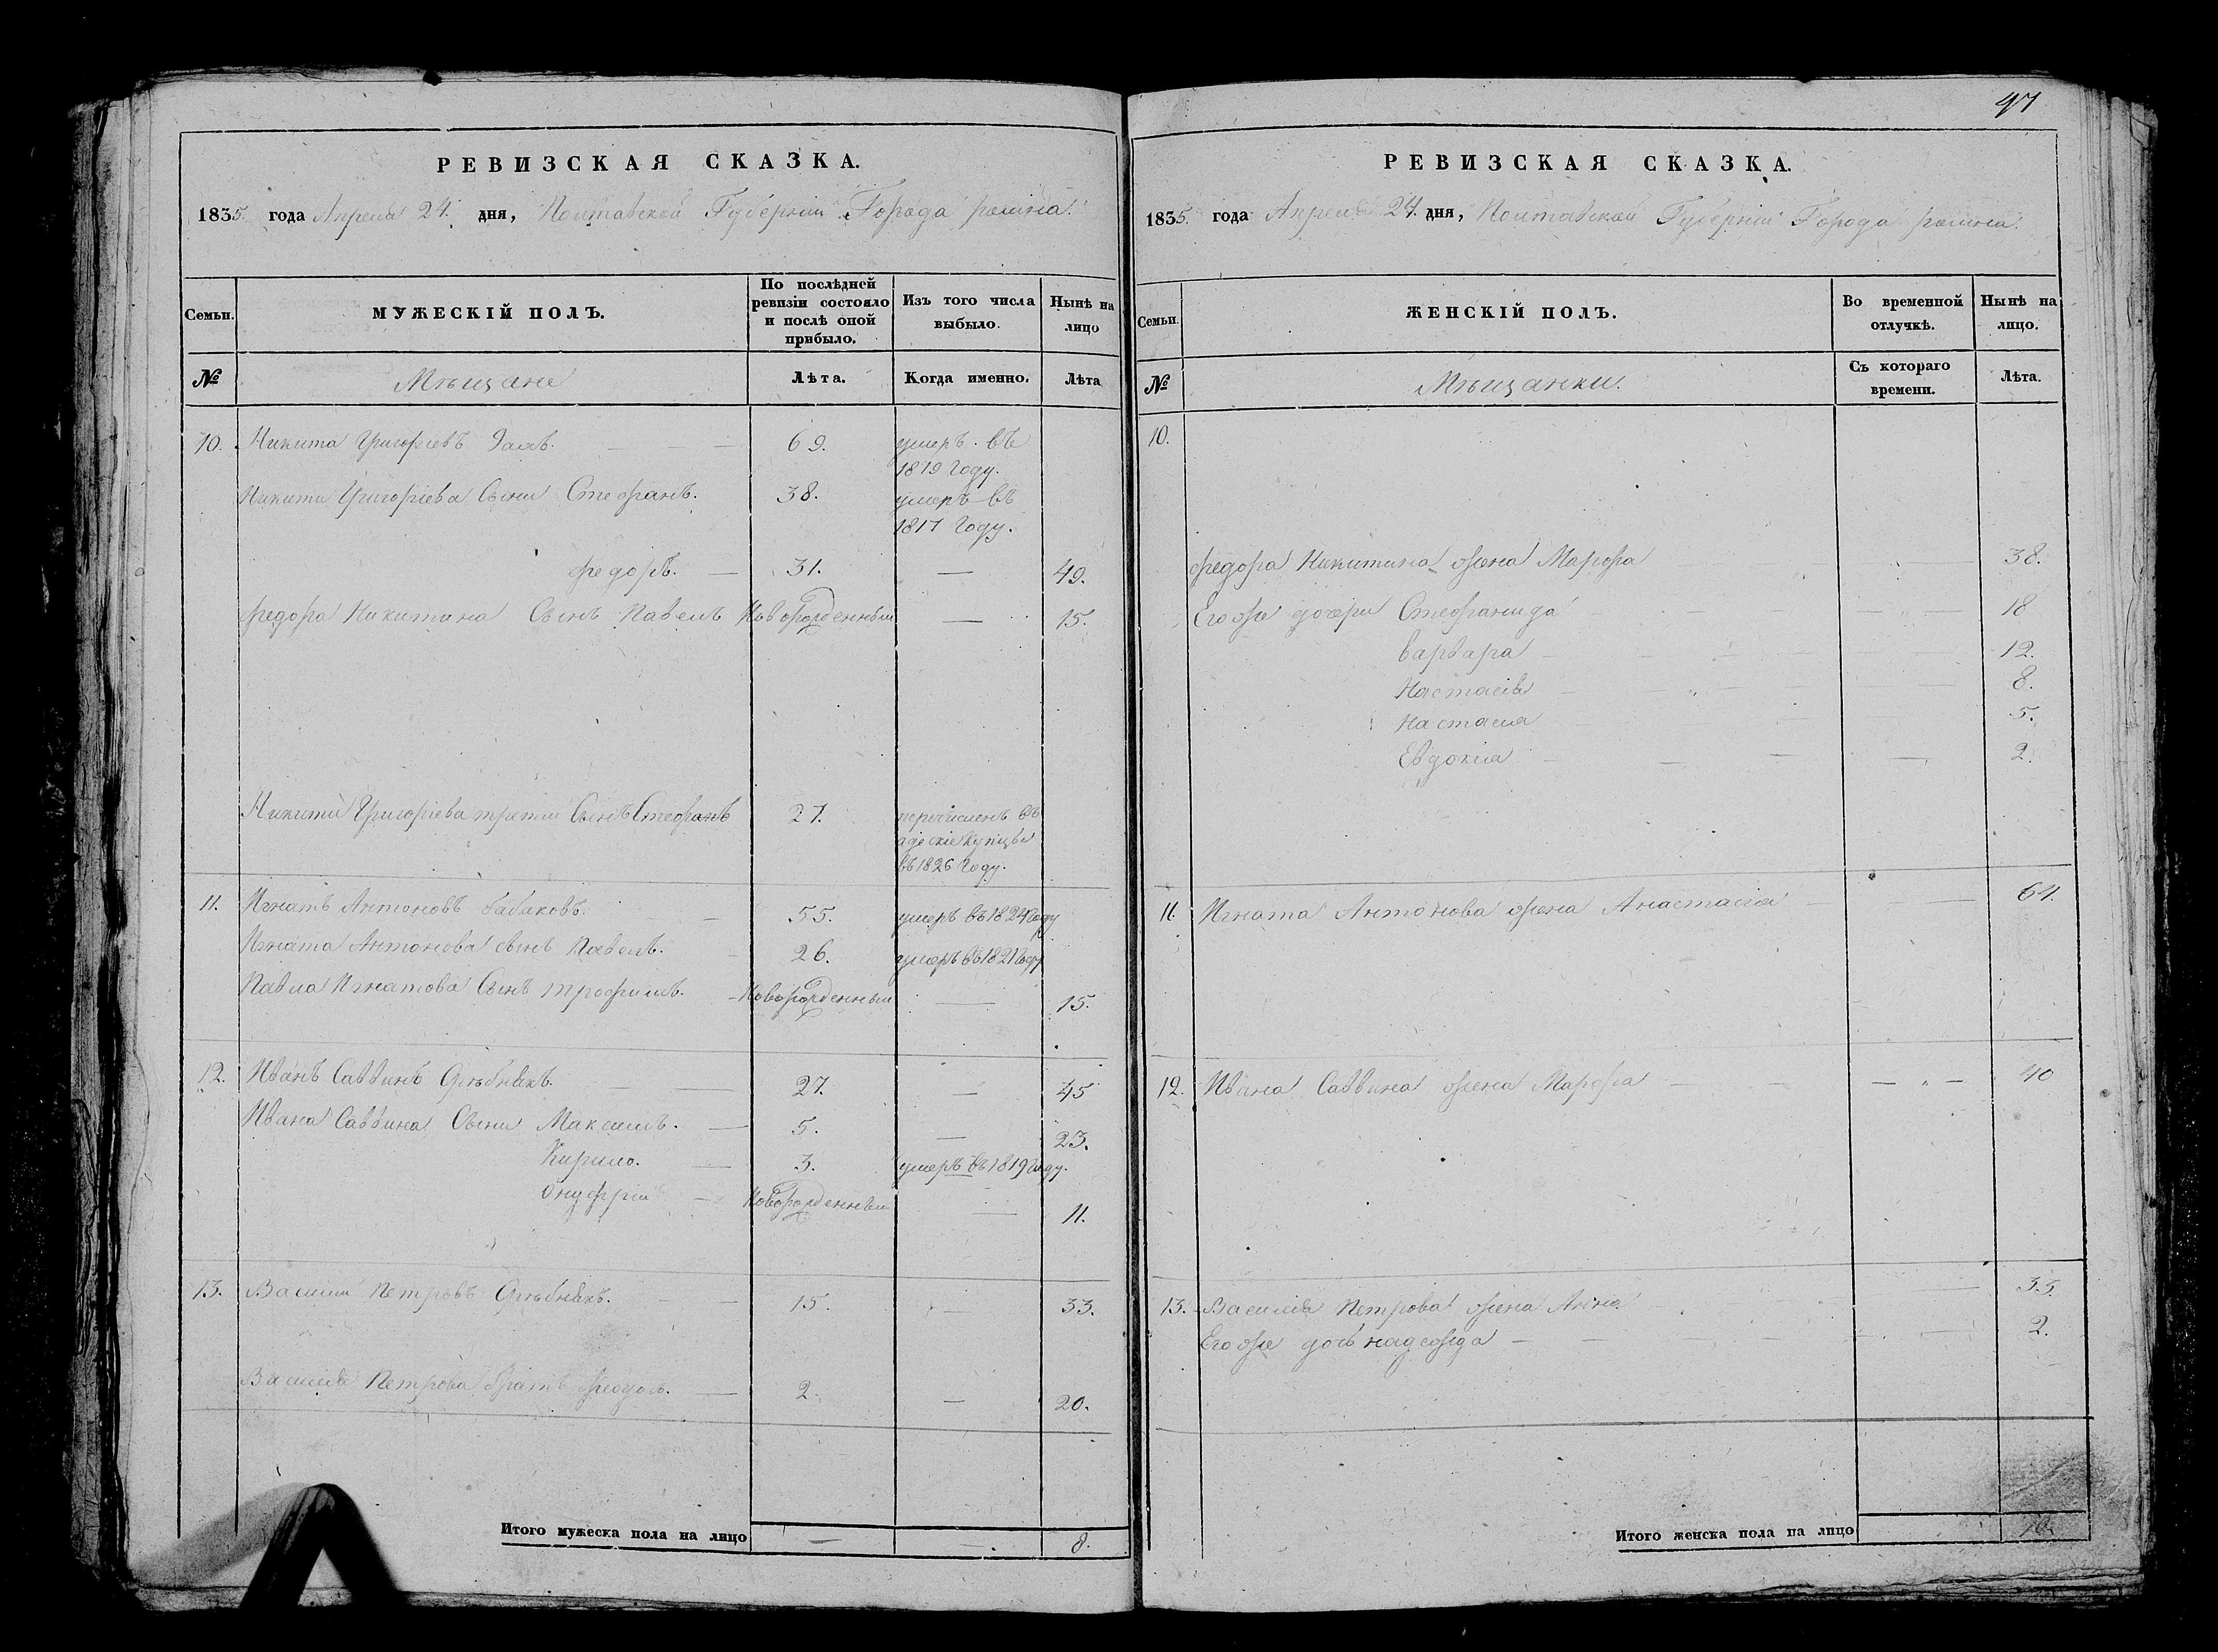 РЕВИЗСКАЯ СКАЗКА.
1835. года Апреля 24. дня, Полтавской Губернии Города ромна.
Семьи.
МУЖЕСКІЙ ПОЛЪ.
По послѣдней
ревизіи состояло
и послѣ оной
прибыло.
Изъ того числа
выбыло.
Нынѣ на
лицо
№
Мѣщане
Лѣта.
Когда именно.
Лѣта
10. Никита Григорьевъ 69. умеръ въ
1819 году.
Никиты Григоріева Сыни Стефанъ. 38. умеръ въ
1817 году.
федоръ. — 31. — 49.
федора Никитина Сынъ Павелъ Новорожденный — 15.
Никиты Григоріева третий Сынъ Стефанъ 27. перечисленъ въ
адескіе купцы
въ 1826 году.
11. Игнатъ Антоновъ бабаковъ. 55. умеръ въ 1824 году
Игната Антонова сынъ Павелъ. 26. умеръ въ 1821 году
Павла Игнатова Сынъ трофимъ. Новорожденный — 15.
12. Иванъ Саввинъ 27. — 45
Ивана Саввина Сыни Максимъ. — 5. — 23.
Кирило. — 3. умеръ въ 1819 году.
Онуфрій — Новорожденный — 11.
13. Василий Петровъ 15. — 33.
Василія Петрова братъ 2. — 20.
Итого мужеска пола на лицо — — 8.
47
РЕВИЗСКАЯ СКАЗКА.
1835. года Апреля 24. дня, Полтавской Губерніи Города ромна.
Семьи.
ЖЕНСКІЙ ПОЛЪ.
Во временной
отлучкѣ.
Нынѣ на
лицо.
№
Мѣщанки.
Съ котораго
времени.
Лѣта.
10.
федора Никитина жена Марфа 38.
Его же дочери Стефанида 18
варвара 12.
Настасія 8.
Настасия 5.
Евдокия 2.
11. Игната Антонова жена Анастасія 64.
12. Ивана Саввина жена Марфа 40
13. Василія Петрова жена Анна 33.
Его же дочь надежда 2.
Итого женска пола на лицо 10.